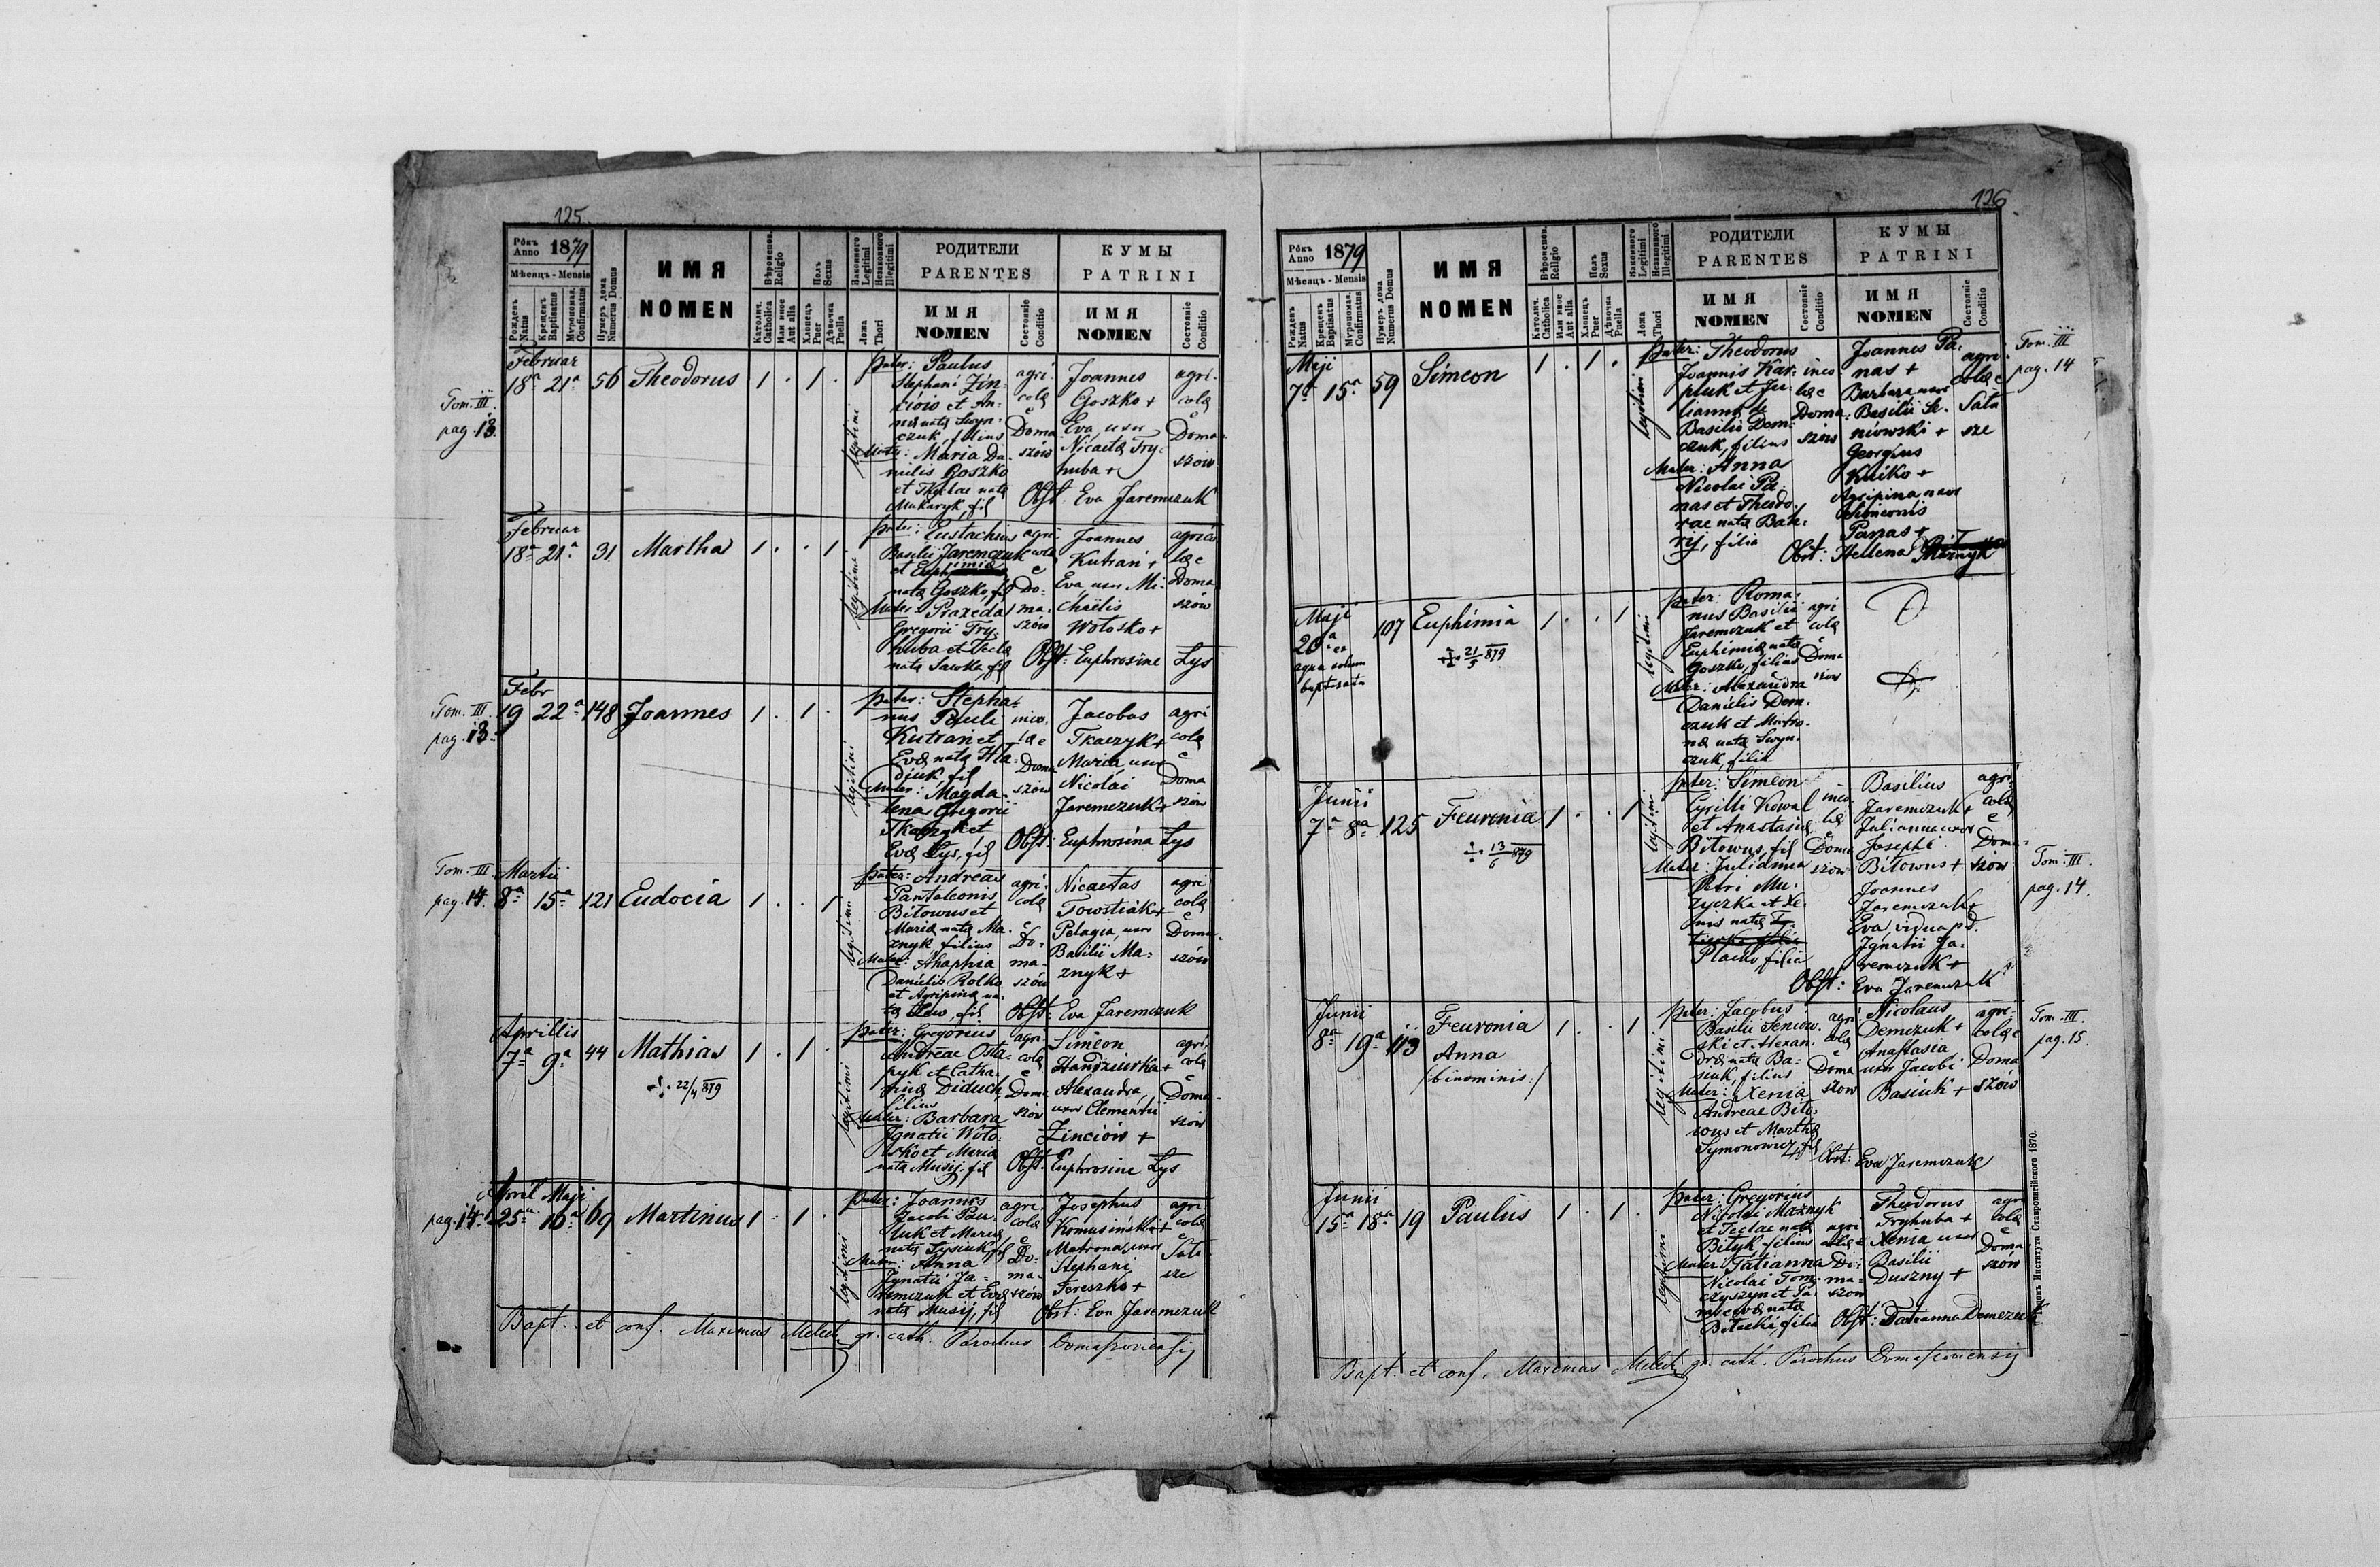 125.
Рôкъ Anno 1879
Мѣсяцъ - Mensis
Рожденъ Natus
Крещенъ Baptisatus
Мѵропомаз. Confirmatus
Нумеръ дома Numerus Domus
ИМЯ
NOMEN
Вѣроиспов. Religio
Католич. Catholica
Или иное Aut alia
Полъ Sexus
Хлопецъ Puer
Дѣвочка Puella
Законного Legitimi
Незаконного Illegitimi
Ложа Thori
РОДИТЕЛИ
PARENTES
ИМЯ
NOMEN
Состояніе Conditio
КУМЫ
PATRINI
ИМЯ
NOMEN
Состояніе Conditio
Tom. III.
pag. 13.
Februar
18ª 21ª 56 Theodorus 1 . 1 .
legitimi
Pater: Paulus
Stephani Zin-
ciów et An-
na nata Swyn-
czuk, filius
Mater: Maria Da-
nielis Goszko
et Theclae nata
Makaryk, fil
agri-
cola
è
Doma-
szów
Joannes
Goszko +
Eva uxor
Nicaeta Try-
huba +
agri-
cola
è
Doma-
szów
Obst. Eva Jaremczuk
Februar
18ª 21ª 31 Martha 1 . . 1
legitimi
Pater: Eustachius
Basilii Jaremczuk
et Euphimia
nata Goszko, fil
Mater: Praxeda
Gregorii Try-
huba et Tecla
nata Sawka, fil
agri-
cola
è
Do-
ma-
szów
Joannes
Kutran +
Eva, uxor Mi-
chaëlis
Wołosko +
agrico
lae
Doma
szów
Obst: Euphrosine Lys
Tom. III.
pag. 13.
Febr
19 22ª 148 Joannes 1 . 1 .
legitimi
Pater: Stepha-
nus Pauli
Kutran et
Eva nata Hla-
djuk, fil
Mater: Magda-
lena Gregorii
Tkaczyk et
Eva Lys, fil
inco-
lae
Doma
szów
Jacobus
Tkaczyk +
Maria uxor
Nicolai
Jaremczuk +
agri
cola
è
Doma
szów
Obst: Euphrosina Lys
Tom. III.
pag. 14.
Martii
8ª 15ª 121 Eudocia 1 . . 1
legitimi
Pater: Andreas
Pantaleonis
Bitowus et
Maria nata Ma-
znyk filius
Mater: Ahaphia
Danielis Rolko
et Agripina na-
ta, fil
agri-
cola
è
Do-
ma-
szów
Nicaetas
Towstiak +
Pelagia, uxor
Basilii Ma-
znyk +
agri
cola
è
Doma-
szów
Obst: Eva Jaremczuk
Aprillis
7ª 9ª 44 Mathias 1 . 1 .
22/4 879
legitimi
Pater: Gregorius
Andreae Osta-
pyk et Catha-
rina Diduch,
filius
Mater: Barbara
Ignatii Woło-
sko et Maria
nata Musij, fil
agri-
cola
è
Doma
szów
Simeon
Handziurka +
Alexandra,
uxor Clementii
Zinciów +
agri
cola
è
Doma-
szów
Obst: Euphrosine Lys
pag. 14.
April Maji
25ª 16ª 69 Martinus 1 . 1 .
legitimi
Pater: Joannes
Jacobi Pau-
luk et Maria
nata Sysiuk, fil
Mater: Anna
Ignatii Ja-
remczuk et Eva
nata Musij, fil
agri-
cola
è
Do-
ma-
szów
Josephus
Komusinski +
Matrona, uxor
Stephani
Fereszko +
agri
cola
è
Sata-
sze
Obst: Eva Jaremczuk
Bapt. et conf. Maximus Melech gr. cath. Parochus Domaszoviensis
126.
Рôкъ Anno 1879
Мѣсяцъ - Mensis
Рожденъ Natus
Крещенъ Baptisatus
Мѵропомаз. Confirmatus
Нумеръ дома Numerus Domus
ИМЯ
NOMEN
Вѣроиспов. Religio
Католич. Catholica
Или иное Aut alia
Полъ Sexus
Хлопецъ Puer
Дѣвочка Puella
Законного Legitimi
Незаконного Illegitimi
Ложа Thori
РОДИТЕЛИ
PARENTES
ИМЯ
NOMEN
Состояніе Conditio
КУМЫ
PATRINI
ИМЯ
NOMEN
Состояніе Conditio
Tom. III
pag. 14
Maji
7ª 15ª 59 Simeon 1 . 1 .
legitimi
Pater: Theodorus
Joannis Kar-
pluk et Ju-
lianna de
Basilio Dem-
czuk, filius
Mater: Anna
Nicolai Pa-
nas et Theodo-
rae nata Bah-
rij, filia
inco-
lae
Doma-
szów
Joannes Pa-
nas +
Barbara uxor
Basilii Se-
niowski +
Georgius
Kuiko +
Agripina uxor
Simeonis
Panas +
agri-
colae
Sata
sze
Obst: Hellena
Maji
20ª ex
aqua solum
baptisata
107 Euphimia 1 . . 1
21/5 879
legitimi
Pater: Roma-
nus Basilii
Jaremczuk et
Euphimia nata
Goszko, filius
Mater: Alexandra
Danielis Dem-
czuk et Matro-
na nata Swyn-
czuk, filia
agri
cola
è
Doma
szów
Junii
7ª 8ª 125 Feuronia 1 . . 1
13/6 879
legitimi
Pater: Simeon
Cyrilli Kowal
et Anastasia
Bitowus, fil
Mater: Julianna
Petri Mu-
zyczka et Xe-
nis nata
Placko filia
inco-
lae
è
Doma
szów
Basilius
Jaremczuk +
Julianna uxor
Josephi
Bitowus +
Joannes
Jaremczuk +
Eva, vidua p.d.
Ignatii Ja-
remczuk +
agri
cola
è
Doma-
szów
Tom. III.
pag. 14.
Obst: Eva Jaremczuk
Junii
8ª 19ª 113 Feuronia 1 . . 1
Anna
/:binominis:/
legitimi
Pater: Jacobus
Basilii Seniow-
ski et Alexan-
dra nata Ba-
siuk, filius
Mater: Xenia
Andreae Bito-
wus et Martha
Symonowicz, fil
agri
cola
è
Doma
szów
Nicolaus
Demczuk +
Anastasia
uxor Jacobi
Basiuk +
agri-
colae
Doma
szów
Tom. III.
pag. 15.
Obst: Eva Jaremczuk
Junii
15ª 18ª 19 Paulus 1 . 1 .
legitimi
Pater: Gregorius
Nicolai Maznyk
et Teclae nata
Bityk, filius
Mater Tatianna
Nicolai Tom-
czyszyn et Pa-
nata
Bitecki, filia
agri
cola è
Do-
ma-
szów
Theodorus
Tryhuba +
Xenia uxor
Basilii
Duszny +
agri
cola
è
Doma
szów
Obst: Tatianna Demczuk
Bapt. et conf. Maximus Melech gr. cath. Parochus Domaszoviensis
Типомъ Института Ставропигійского 1870.